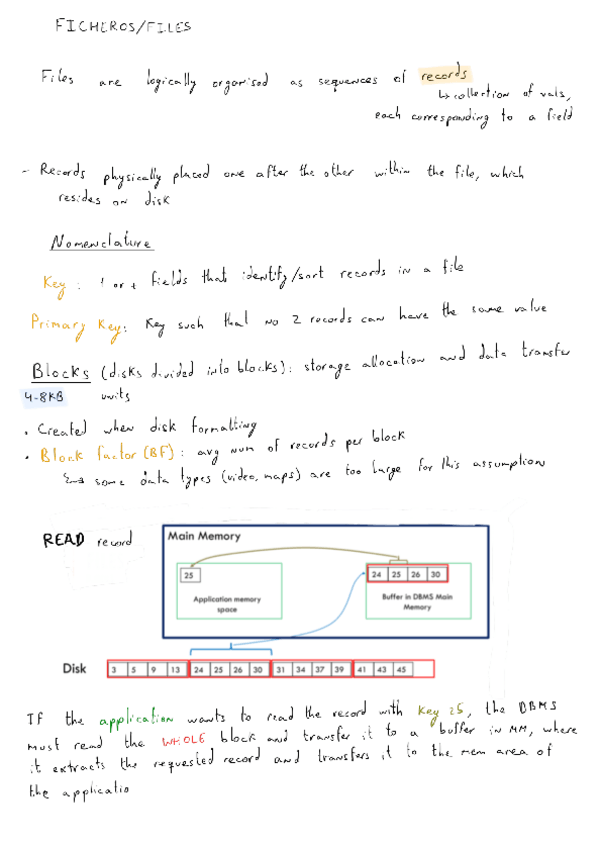 FICHEROS/FILES
Files are logically organised as sequences of records
↳ collection of vals,
each corresponding to a field
- Records physically placed one after the other within the file, which
resides on disk
Nomenclature
Key: 1 or + fields that identify/sort records in a file
Primary Key: Key such that no 2 records can have the same value
Blocks (disks divided into blocks): storage allocation and data transfer
4-8KB units
• Created when disk formatting
• Block factor (BF): avg num of records per block
↳ some data types (video, maps) are too large for this assumption
READ record
Main Memory
25
24 25 26 30
Application memory
space
Buffer in DBMS Main
Memory
Disk 3 5 9 13 24 25 26 30 31 34 37 39 41 43 45
If the application wants to read the record with key 25, the DBMS
must read the WHOLE block and transfer it to a buffer in MM, where
it extracts the requested record and transfers it to the mem area of
the applicatio